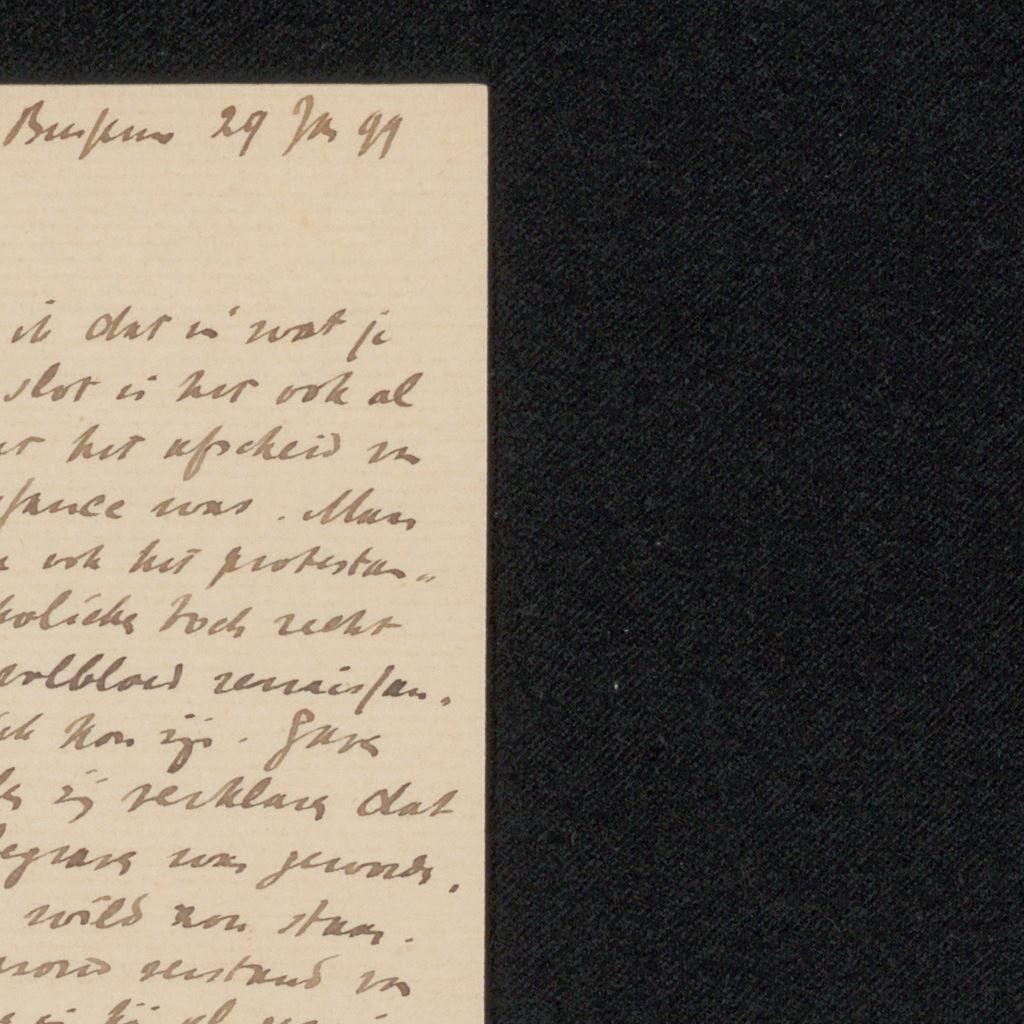 Bussum 29 Jan 99
ik dat in wat je
slot is het ook al
het afscheid van
sance was. Maar
ook het protestan„
holieke toch recht
volbloed renaissan„
kon zijn. Gaan
zij verklaren dat
begraven was geworden,
wild kon staan.
verstand van